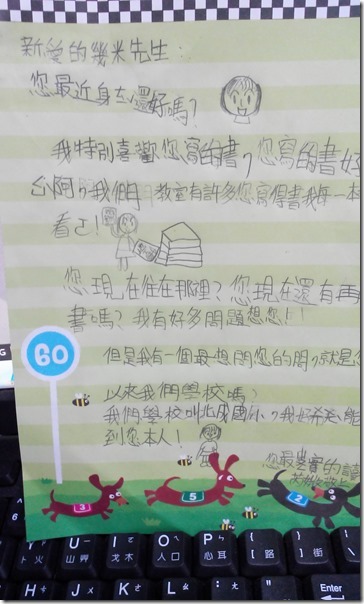 新愛的幾米先生:
您最近身体還好嗎?
我特別喜歡您寫的書,您寫的書好
我們教室有許多您寫得書我每一本
看了!
您現在住在那裡?您現在還有再
書嗎?我有好多問題想您!
60
但是我有一個最想問您的問,就是您
以來我們學校嗎?
我們學校叫北成國小,我好希望能
到您本人!
您最忠實的讀
3
5
2
G
6
Y
U
I
O
P
{
[
}
]
卜
火
山
戈
木
人
口
心
H
J
K
L
Enter